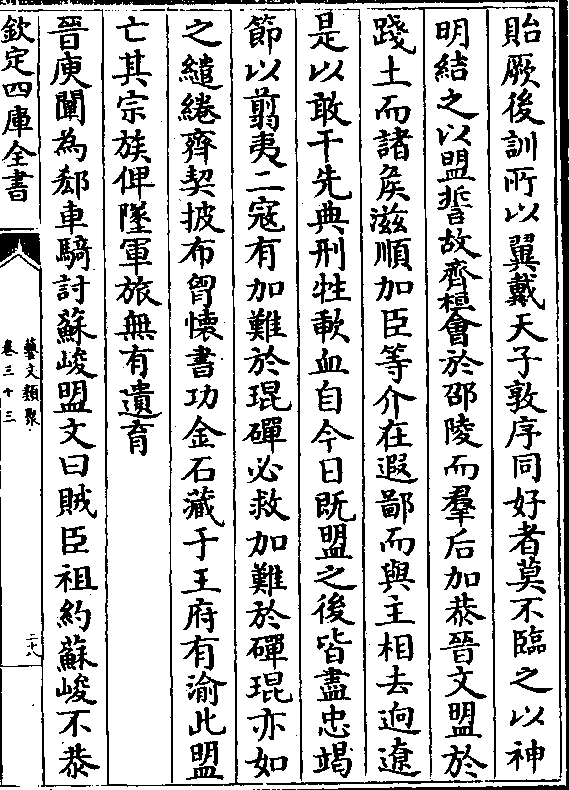 貽厥後訓所以翼戴天子敦序同好者莫不臨之以神
明結之以盟誓故齊桓會於邵陵而羣后加恭晉文盟於
踐土而諸侯滋順加臣等介在遐鄙而與主相去逈遼
是以敢干先典刑牲歃血自今日既盟之後皆盡忠竭
節以翦夷二寇有加難於琨磾必救加難於磾琨亦如
之繾綣齊契披布胷懷書功金石藏于王府有渝此盟
亡其宗族俾墜軍旅無有遺育
晉庾闡為郄車騎討蘇峻盟文曰賊臣祖約蘇峻不恭
欽定四庫全書
藝文類聚
卷三十三
二八